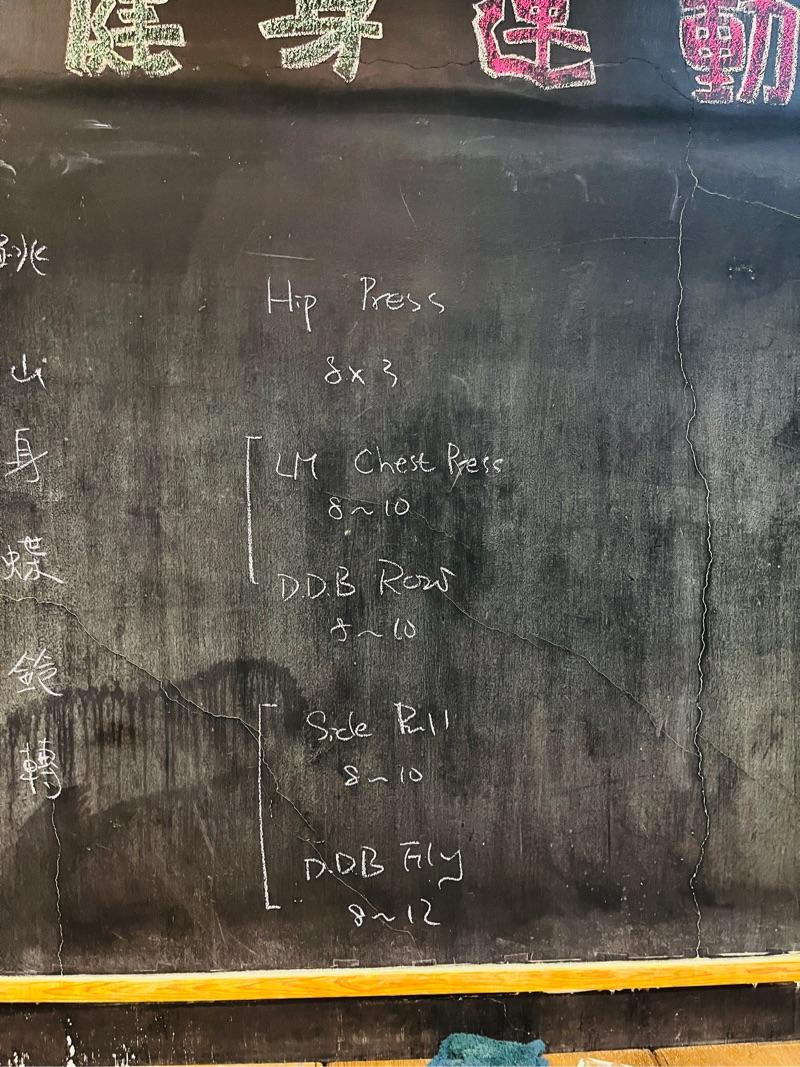 健身運動
跳
山
身
蝶
鈴
轉
Hip Press
8x3
LM Chest Press
8~10
D.D.B Row
8~10
Side Pull
8~10
D.D.B Fly
8~12